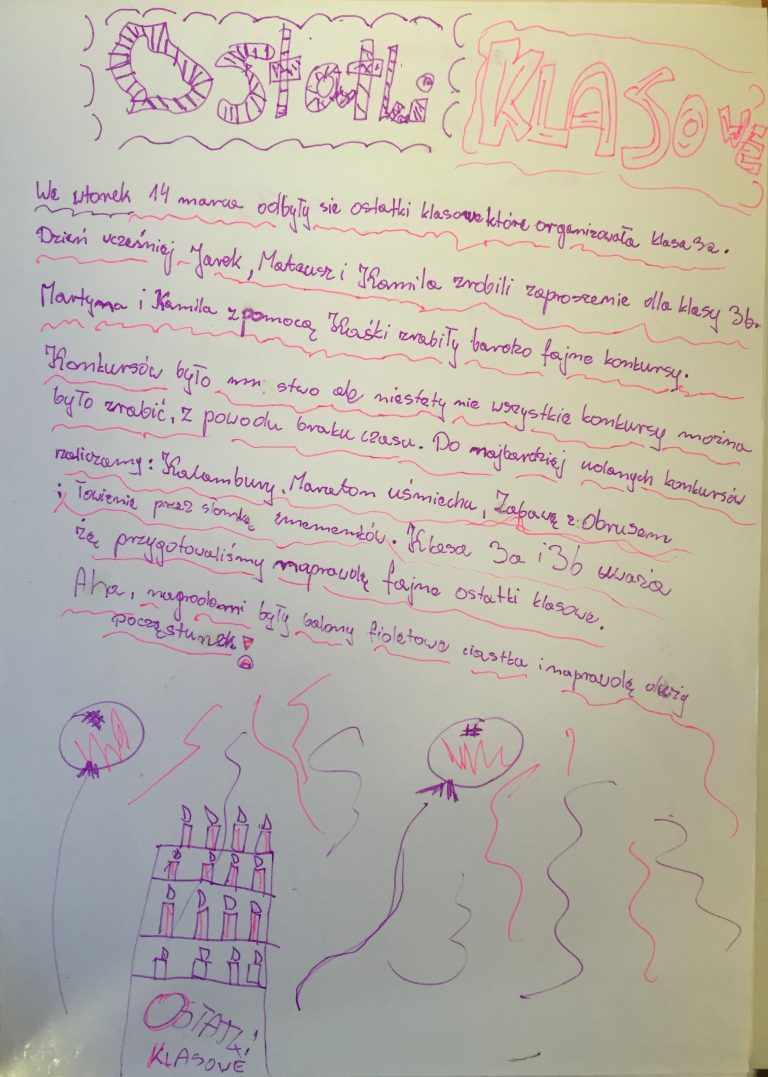 Ostatki KLASOWE
We wtorek 14 marca odbyły się ostatki klasowe które organizowała klasa 3a.
Dzień wcześniej Jarek, Mateusz i Kamila zrobili zaproszenie dla klasy 3b.
Martyna i Kamila z pomocą Kaśki zrabiły bardzo fajne konkursy.
Konkursów było mnóstwo ale niestety nie wszystkie konkursy można
było zrabić, z powodu braku czasu. Do najbardziej udanych konkursów
zaliczamy: Kalambury, Maraton uśmiechu, Zabawę z Obrusem
i Towienie przez słomkę ememenków. Klasa 3a i 3b uważa
żę przygotowaliśmy naprawdę fajne ostatki klasowe.
Aha, nagrodami były balony fioletowe ciastka i naprawdę duży
poczęstunek!
OSTATKI
KLASOWE